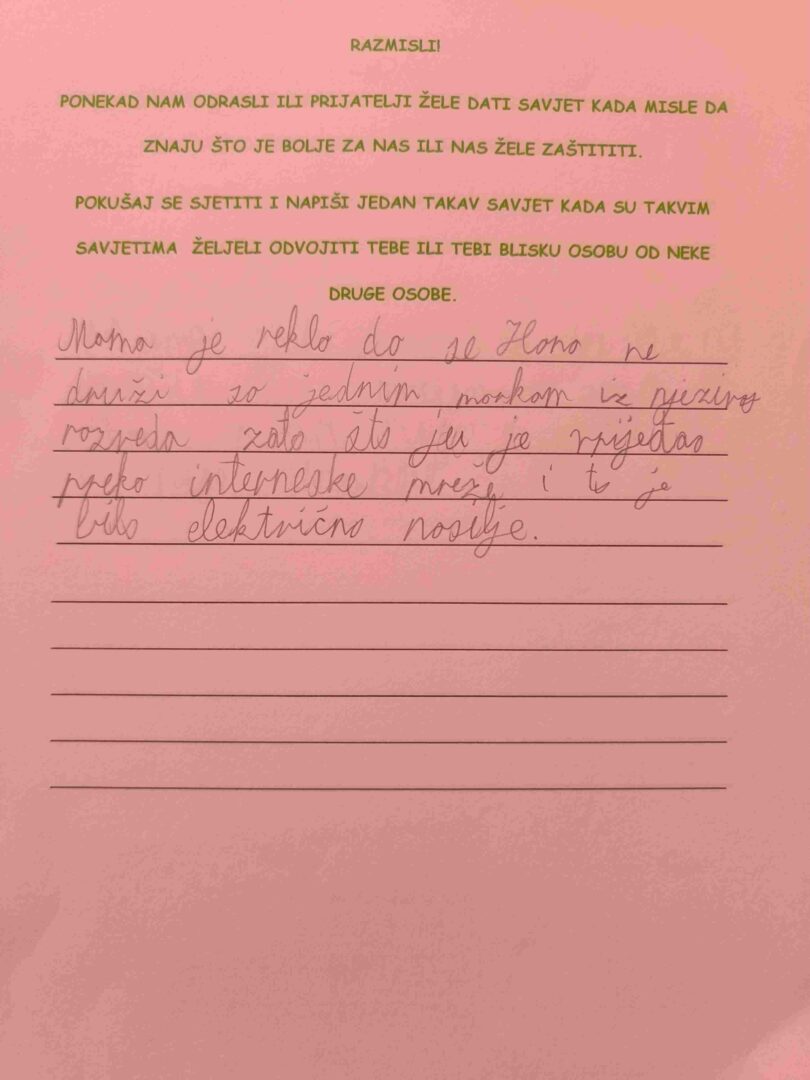 RAZMISLI!
PONEKAD NAM ODRASLI ILI PRIJATELJI ŽELE DATI SAVJET KADA MISLE DA
ZNAJU ŠTO JE BOLJE ZA NAS ILI NAS ŽELE ZAŠTITITI.
POKUŠAJ SE SJETITI I NAPIŠI JEDAN TAKAV SAVJET KADA SU TAKVIM
SAVJETIMA ŽELJELI ODVOJITI TEBE ILI TEBI BLISKU OSOBU OD NEKE
DRUGE OSOBE.
Mama je rekla da se Hana ne
druži sa jednim moakom iz njezinog
razreda zato što ju je vrijeđao
preko interneske mreže i to je
bilo električno nasilje.